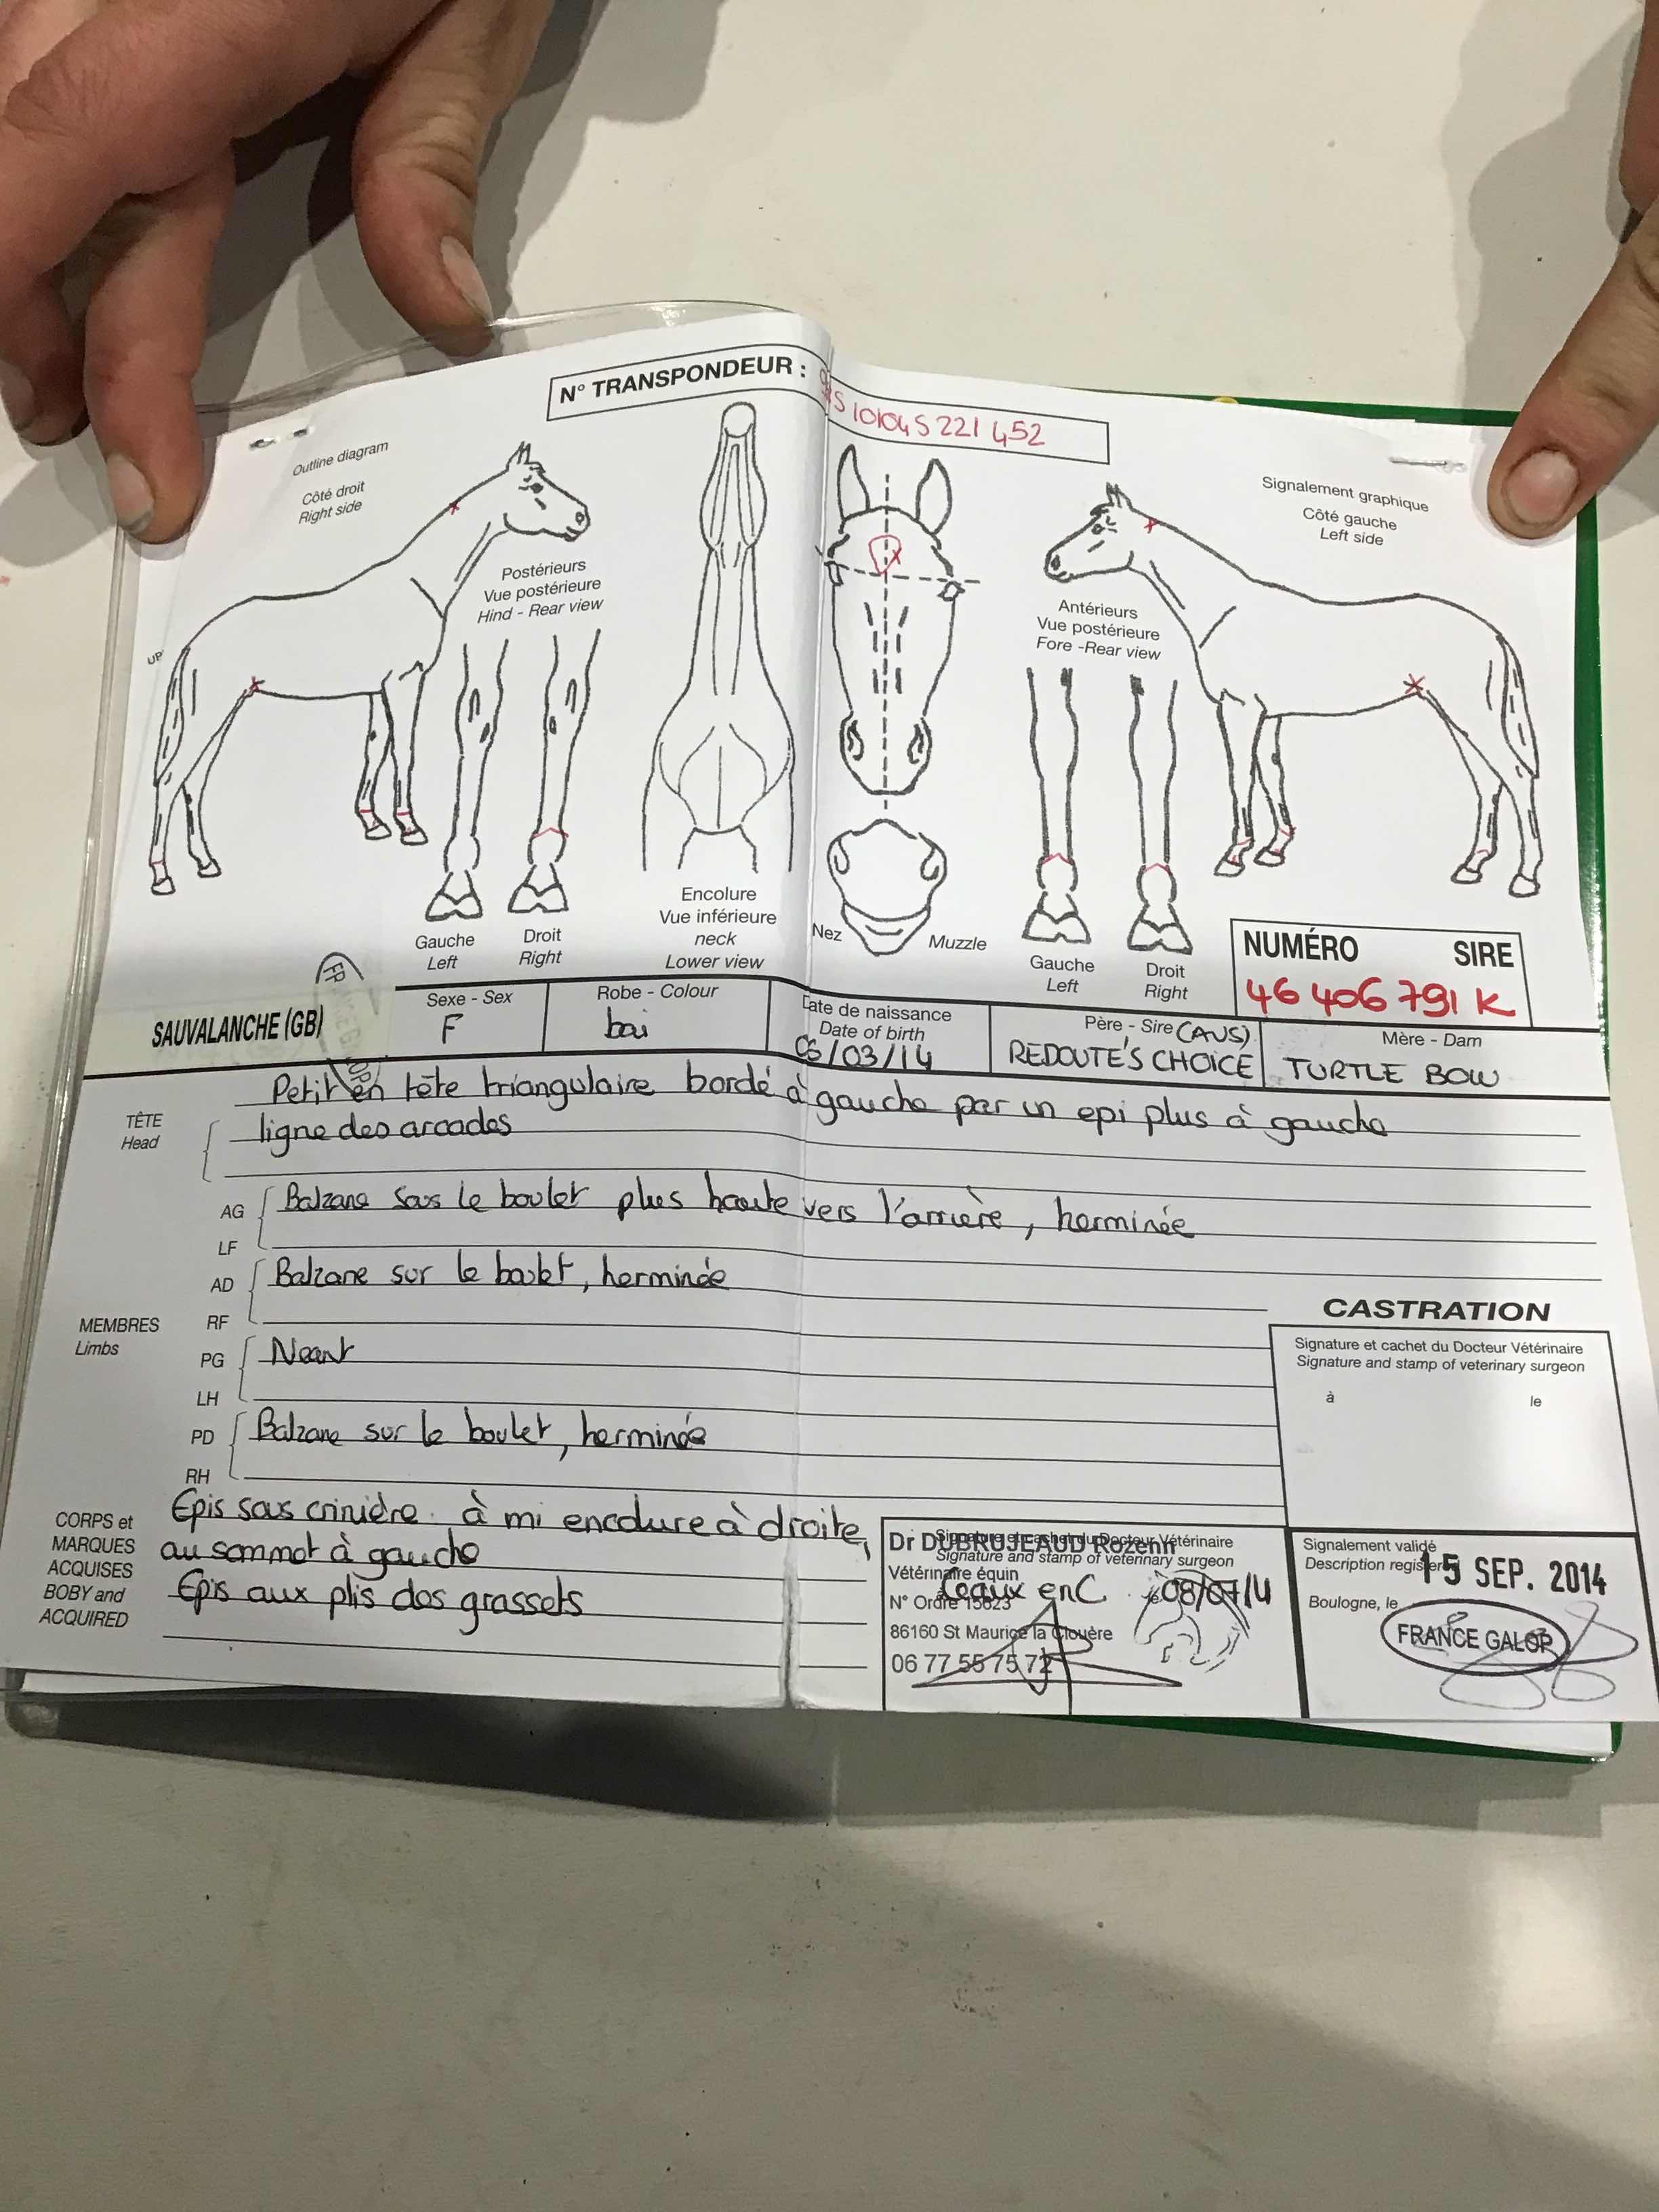 N° TRANSPONDEUR :
10104S 221 452
Outline diagram
Côté droit
Right side
Signalement graphique
Côté gauche
Left side
Postérieurs
Vue postérieure
Hind - Rear view
Antérieurs
Vue postérieure
Fore -Rear view
Gauche
Left
Droit
Right
Encolure
Vue inférieure
neck
Lower view
Nez
Muzzle
Gauche
Left
Droit
Right
NUMÉRO SIRE
46 406 791 K
SAUVALANCHE (GB)
Sexe - Sex
F
Robe - Colour
bai
Date de naissance
Date of birth
/03/14
Père - Sire (AUS)
REDOUTE'S CHOICE
Mère - Dam
TURTLE BOW
TÊTE
Head
Petit en tête triangulaire bordé à gauche par un epi plus à gauche
ligne des arcades
MEMBRES
Limbs
AG
LF
Balzane sous le boulet plus haute vers l'arrière, herminée
AD
RF
Balzane sur le boulet, herminée
PG
LH
Neant
PD
RH
Balzane sur le boulet, herminée
CORPS et
MARQUES
ACQUISES
BOBY and
ACQUIRED
Epis sous crinière à mi encolure à droite,
au sommet à gauche
Epis aux plis des grassets
CASTRATION
Signature et cachet du Docteur Vétérinaire
Signature and stamp of veterinary surgeon
à le
Signature et cachet du Docteur Vétérinaire
Signature and stamp of veterinary surgeon
Dr DUBRUJEAUD Rozenn
Vétérinaire équin
N° Ordre 15623
Ceaux en C 08/07/14
86160 St Maurice la Clouère
06 77 55 75 72
Signalement validé
Description registered
15 SEP. 2014
Boulogne, le
FRANCE GALOP